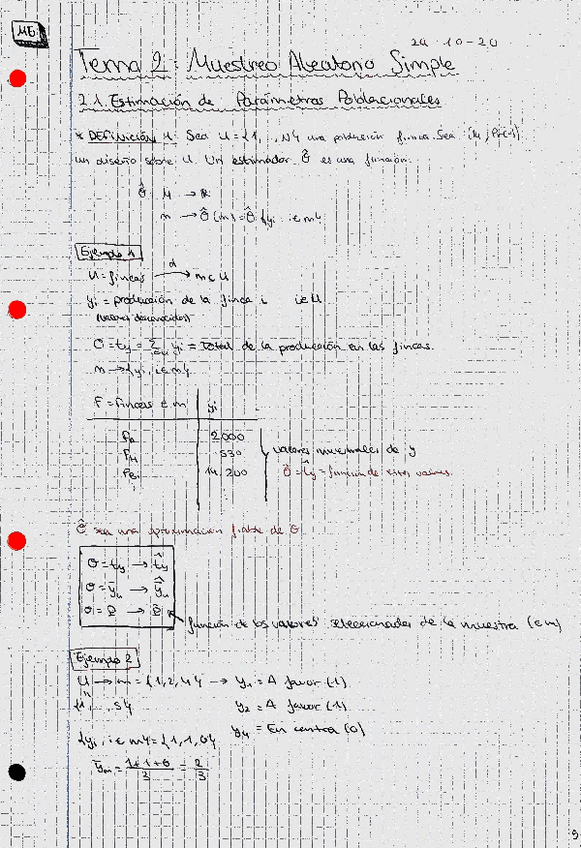 ME
29-10-20
Tema 2: Muestreo Aleatorio Simple
2.1. Estimación de Parámetros Poblacionales
* DEFINICIÓN 1: Sea U = {1, ..., N} una población finita. Sea
un diseño sobre U. Un estimador θ̂ es una función:
θ̂: M → R
m → θ̂(m) = θ̂{yi, i∈m}
Ejemplo 1
U = fincas → m ⊂ U
yi = producción de la finca i i∈U
(valores desconocidos)
θ = ty = Σ yi = total de la producción en las fincas.
m → {yi, i∈m}
F = fincas ∈ m yi
2000
530
14.200
valores muestrales de y
θ̂ = t̂y = función de estos valores
θ̂ sea una aproximación fiable de θ
θ = ty → t̂y
θ = ȳu → ŷu
función de los valores seleccionados de la muestra (∈ m)
Ejemplo 2
U → m = {1,2,4} → y1 = A favor (1)
{1, ..., 5} y2 = A favor (1)
y4 = En contra (0)
{yi, i∈m} = {1,1,0}
ȳm = (1+1+0)/3 = 2/3
9